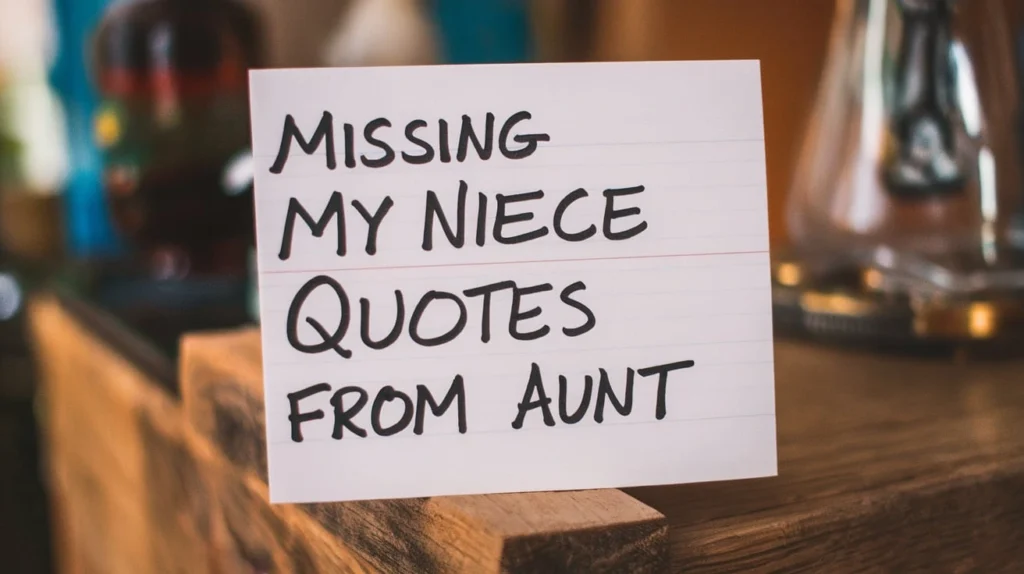 MISSING
MY NIECE
QUOTES
FROM AUNT